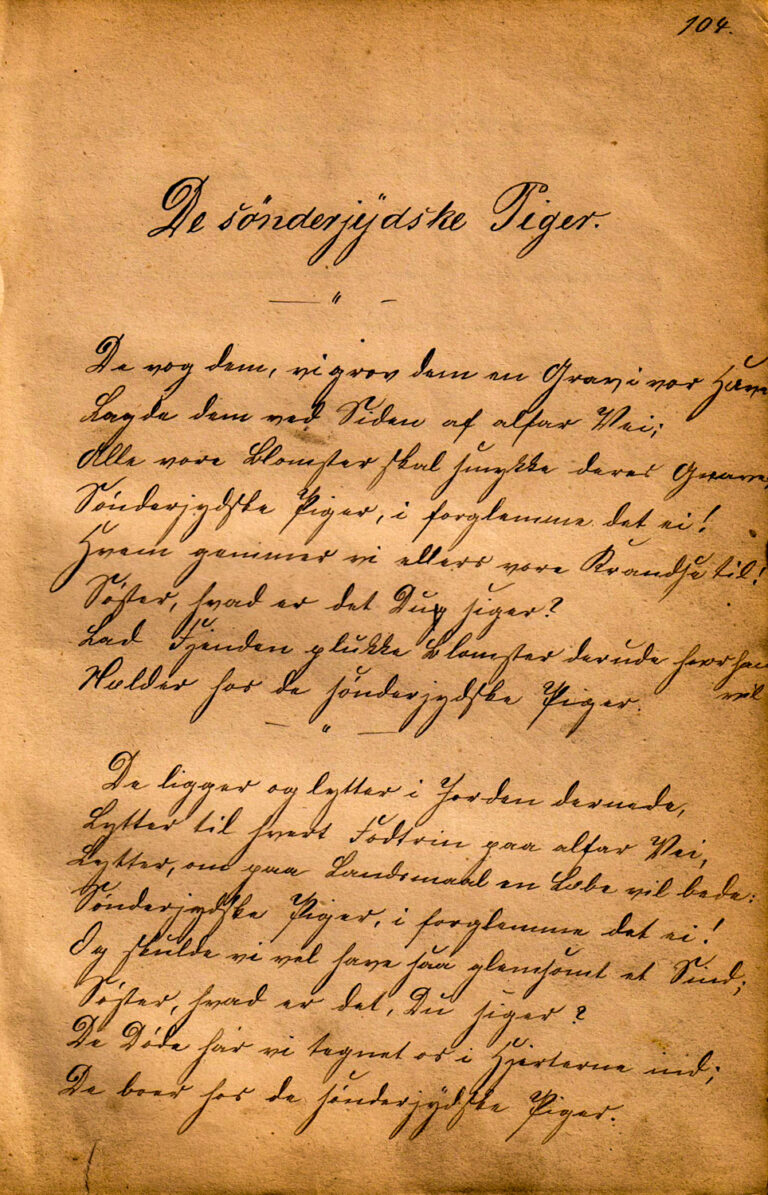 104.
De sönderjÿdske Piger.
De vog dem, vi grov dem en Grav i vor Have
Lagde dem ved Siden af alfar Vei;
Alle vore Blomster skal smykke deres Grave,
Sønderjydske Piger, i forglemme det ei!
Hvem gemmer vi ellers vore Krandse til!
Søster, hvad er det Du siger?
Lad Fjenden plukke Blomster derude hvor han
vil
Nælder hos de sønderjydske Piger.
De ligger og lytter i Jorden dernede,
Lytter til hvert Fodtrin paa alfar Vei,
Lytter, om paa Landsmaal en Læbe vil bede:
Sønderjydske Piger, i forglemme det ei!
Og skulde vi vel have saa glemsomt et Sind;
Søster, hvad er det, Du siger?
De Døde har vi tegnet os i Hjerterne ind;
De boer hos de sønderjÿdske Piger.